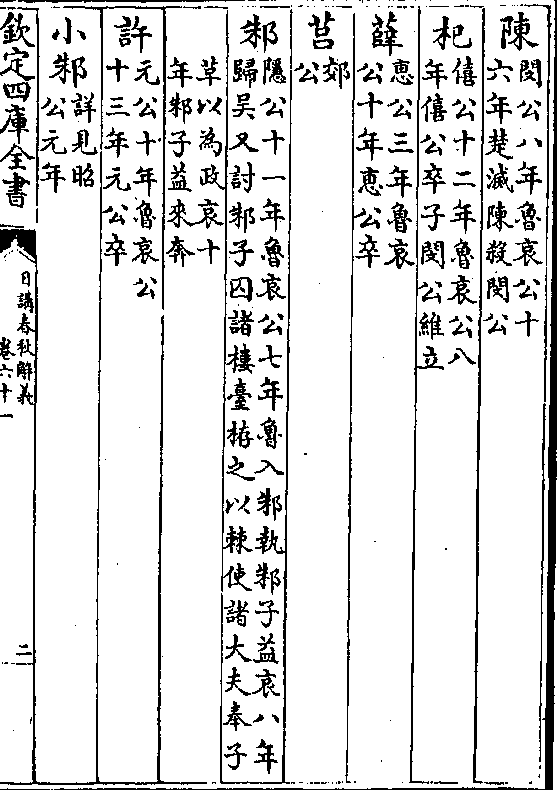 陳閔公八年魯哀公十
六年楚滅陳殺閔公
杞僖公十二年魯哀公八
年僖公卒子閔公維立
薛惠公三年魯哀
公十年惠公卒
莒郊
公
邾隱公十一年魯哀公七年魯入邾執邾子益哀八年
歸吳又討邾子囚諸樓臺栫之以棘使諸大夫奉子
革以為政哀十
年邾子益來奔
許元公十年魯哀公
十三年元公卒
小邾詳見昭
公元年
欽定四庫全書
日講春秋解義
卷六十一
二